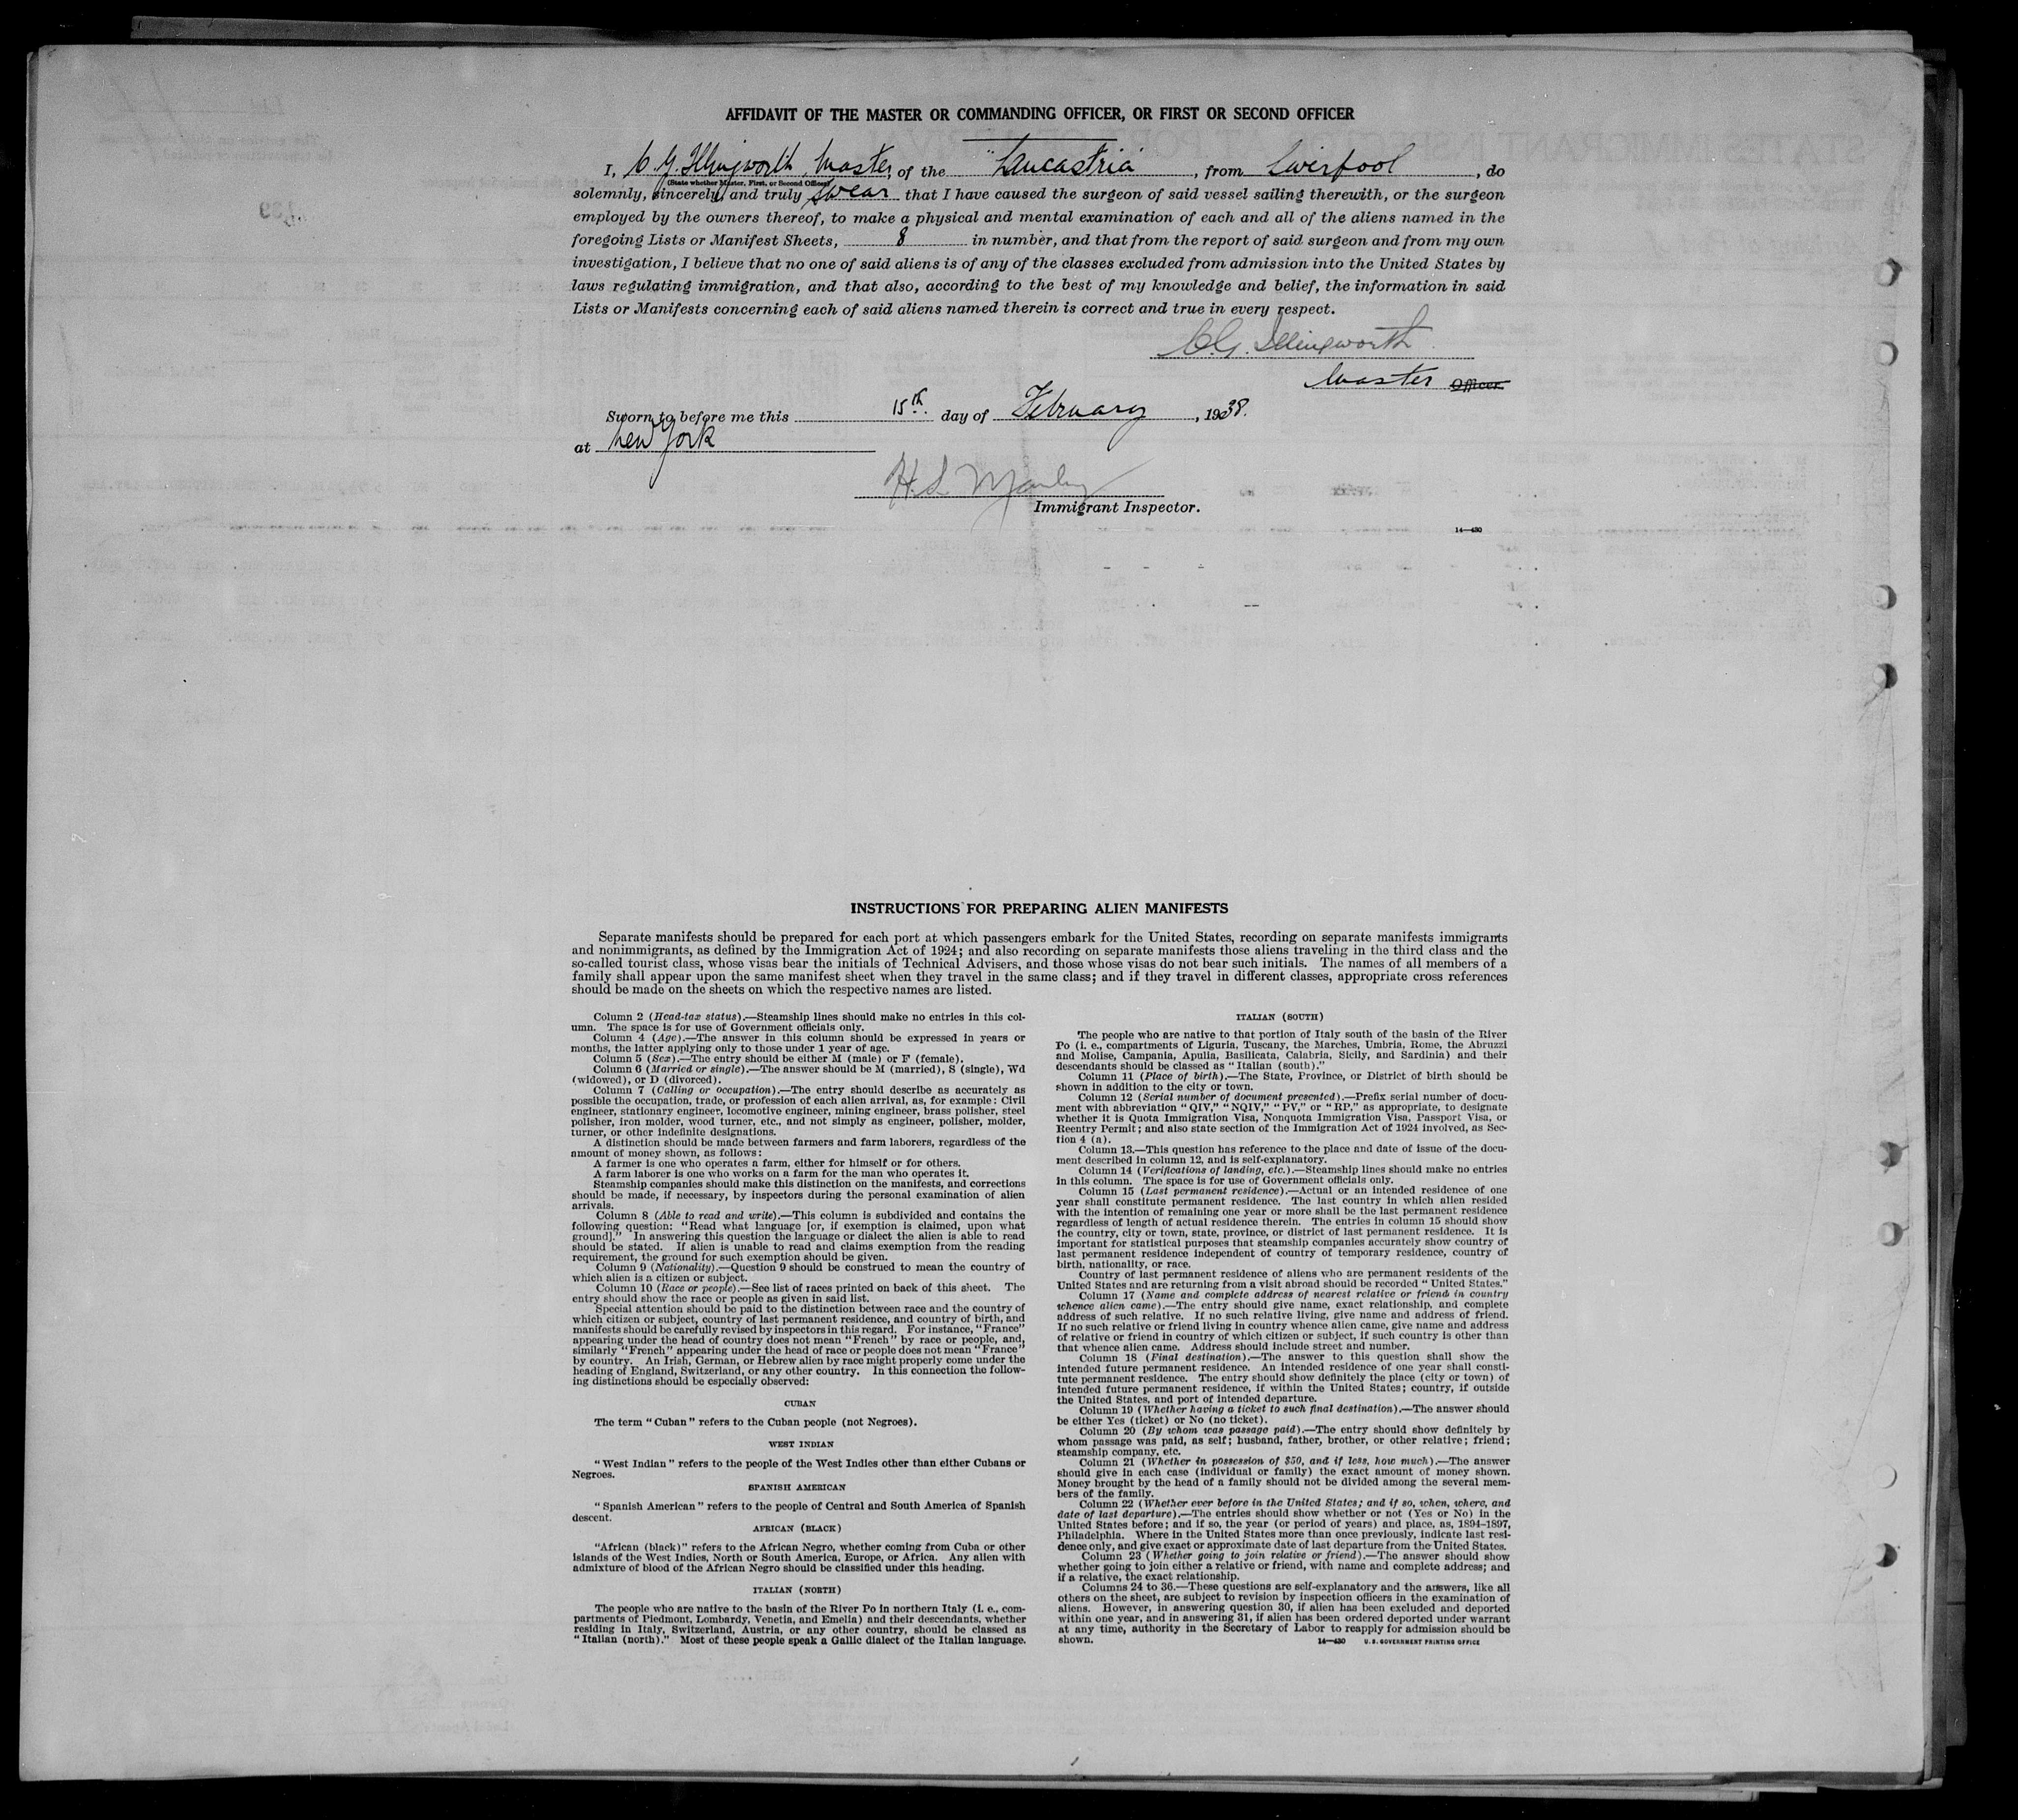 AFFIDAVIT OF THE MASTER OR COMMANDING OFFICER, OR FIRST OR SECOND OFFICER
I, C. G. Illingworth, Master, of the "Lancastria", from Liverpool, do
(State whether Master, First, or Second Officer)
solemnly, sincerely, and truly swear that I have caused the surgeon of said vessel sailing therewith, or the surgeon
employed by the owners thereof, to make a physical and mental examination of each and all of the aliens named in the
foregoing Lists or Manifest Sheets, 8 in number, and that from the report of said surgeon and from my own
investigation, I believe that no one of said aliens is of any of the classes excluded from admission into the United States by
laws regulating immigration, and that also, according to the best of my knowledge and belief, the information in said
Lists or Manifests concerning each of said aliens named therein is correct and true in every respect.
C. G. Illingworth
Master Officer.
Sworn to before me this 15th. day of February, 1938.
at New York
H. L. Manley
Immigrant Inspector.
14—430
INSTRUCTIONS FOR PREPARING ALIEN MANIFESTS
Separate manifests should be prepared for each port at which passengers embark for the United States, recording on separate manifests immigrants
and nonimmigrants, as defined by the Immigration Act of 1924; and also recording on separate manifests those aliens traveling in the third class and the
so-called tourist class, whose visas bear the initials of Technical Advisers, and those whose visas do not bear such initials. The names of all members of a
family shall appear upon the same manifest sheet when they travel in the same class; and if they travel in different classes, appropriate cross references
should be made on the sheets on which the respective names are listed.
Column 2 (Head-tax status).—Steamship lines should make no entries in this col-
umn. The space is for use of Government officials only.
Column 4 (Age).—The answer in this column should be expressed in years or
months, the latter applying only to those under 1 year of age.
Column 5 (Sex).—The entry should be either M (male) or F (female).
Column 6 (Married or single).—The answer should be M (married), S (single), Wd
(widowed), or D (divorced).
Column 7 (Calling or occupation).—The entry should describe as accurately as
possible the occupation, trade, or profession of each alien arrival, as, for example: Civil
engineer, stationary engineer, locomotive engineer, mining engineer, brass polisher, steel
polisher, iron molder, wood turner, etc., and not simply as engineer, polisher, molder,
turner, or other indefinite designations.
A distinction should be made between farmers and farm laborers, regardless of the
amount of money shown, as follows:
A farmer is one who operates a farm, either for himself or for others.
A farm laborer is one who works on a farm for the man who operates it.
Steamship companies should make this distinction on the manifests, and corrections
should be made, if necessary, by inspectors during the personal examination of alien
arrivals.
Column 8 (Able to read and write).—This column is subdivided and contains the
following question: "Read what language [or, if exemption is claimed, upon what
ground]." In answering this question the language or dialect the alien is able to read
should be stated. If alien is unable to read and claims exemption from the reading
requirement, the ground for such exemption should be given.
Column 9 (Nationality).—Question 9 should be construed to mean the country of
which alien is a citizen or subject.
Column 10 (Race or people).—See list of races printed on back of this sheet. The
entry should show the race or people as given in said list.
Special attention should be paid to the distinction between race and the country of
which citizen or subject, country of last permanent residence, and country of birth, and
manifests should be carefully revised by inspectors in this regard. For instance, "France"
appearing under the head of country does not mean "French" by race or people, and,
similarly "French" appearing under the head of race or people does not mean "France"
by country. An Irish, German, or Hebrew alien by race might properly come under the
heading of England, Switzerland, or any other country. In this connection the follow-
ing distinctions should be especially observed:
CUBAN
The term "Cuban" refers to the Cuban people (not Negroes).
WEST INDIAN
"West Indian" refers to the people of the West Indies other than either Cubans or
Negroes.
SPANISH AMERICAN
"Spanish American" refers to the people of Central and South America of Spanish
descent.
AFRICAN (BLACK)
"African (black)" refers to the African Negro, whether coming from Cuba or other
islands of the West Indies, North or South America, Europe, or Africa. Any alien with
admixture of blood of the African Negro should be classified under this heading.
ITALIAN (NORTH)
The people who are native to the basin of the River Po in northern Italy (i. e., com-
partments of Piedmont, Lombardy, Venetia, and Emelia) and their descendants, whether
residing in Italy, Switzerland, Austria, or any other country, should be classed as
"Italian (north)." Most of these people speak a Gallic dialect of the Italian language.
ITALIAN (SOUTH)
The people who are native to that portion of Italy south of the basin of the River
Po (i. e., compartments of Liguria, Tuscany, the Marches, Umbria, Rome, the Abruzzi
and Molise, Campania, Apulia, Basilicata, Calabria, Sicily, and Sardinia) and their
descendants should be classed as "Italian (south)."
Column 11 (Place of birth).—The State, Province, or District of birth should be
shown in addition to the city or town.
Column 12 (Serial number of document presented).—Prefix serial number of docu-
ment with abbreviation "QIV," "NQIV," "PV," or "RP," as appropriate, to designate
whether it is Quota Immigration Visa, Nonquota Immigration Visa, Passport Visa, or
Reentry Permit; and also state section of the Immigration Act of 1924 involved, as Sec-
tion 4 (a).
Column 13.—This question has reference to the place and date of issue of the docu-
ment described in column 12, and is self-explanatory.
Column 14 (Verifications of landing, etc.).—Steamship lines should make no entries
in this column. The space is for use of Government officials only.
Column 15 (Last permanent residence).—Actual or an intended residence of one
year shall constitute permanent residence. The last country in which alien resided
with the intention of remaining one year or more shall be the last permanent residence
regardless of length of actual residence therein. The entries in column 15 should show
the country, city or town, state, province, or district of last permanent residence. It is
important for statistical purposes that steamship companies accurately show country of
last permanent residence independent of country of temporary residence, country of
birth, nationality, or race.
Country of last permanent residence of aliens who are permanent residents of the
United States and are returning from a visit abroad should be recorded "United States."
Column 17 (Name and complete address of nearest relative or friend in country
whence alien came).—The entry should give name, exact relationship, and complete
address of such relative. If no such relative living, give name and address of friend.
If no such relative or friend living in country whence alien came, give name and address
of relative or friend in country of which citizen or subject, if such country is other than
that whence alien came. Address should include street and number.
Column 18 (Final destination).—The answer to this question shall show the
intended future permanent residence. An intended residence of one year shall consti-
tute permanent residence. The entry should show definitely the place (city or town) of
intended future permanent residence, if within the United States; country, if outside
the United States, and port of intended departure.
Column 19 (Whether having a ticket to such final destination).—The answer should
be either Yes (ticket) or No (no ticket).
Column 20 (By whom was passage paid).—The entry should show definitely by
whom passage was paid, as self; husband, father, brother, or other relative; friend;
steamship company, etc.
Column 21 (Whether in possession of $50, and if less, how much).—The answer
should give in each case (individual or family) the exact amount of money shown.
Money brought by the head of a family should not be divided among the several mem-
bers of the family.
Column 22 (Whether ever before in the United States; and if so, when, where, and
date of last departure).—The entries should show whether or not (Yes or No) in the
United States before; and if so, the year (or period of years) and place, as, 1894–1897,
Philadelphia. Where in the United States more than once previously, indicate last resi-
dence only, and give exact or approximate date of last departure from the United States.
Column 23 (Whether going to join relative or friend).—The answer should show
whether going to join either a relative or friend, with name and complete address; and
if a relative, the exact relationship.
Columns 24 to 36.—These questions are self-explanatory and the answers, like all
others on the sheet, are subject to revision by inspection officers in the examination of
aliens. However, in answering question 30, if alien has been excluded and deported
within one year, and in answering 31, if alien has been ordered deported under warrant
at any time, authority in the Secretary of Labor to reapply for admission should be
shown.
14—430 U. S. GOVERNMENT PRINTING OFFICE